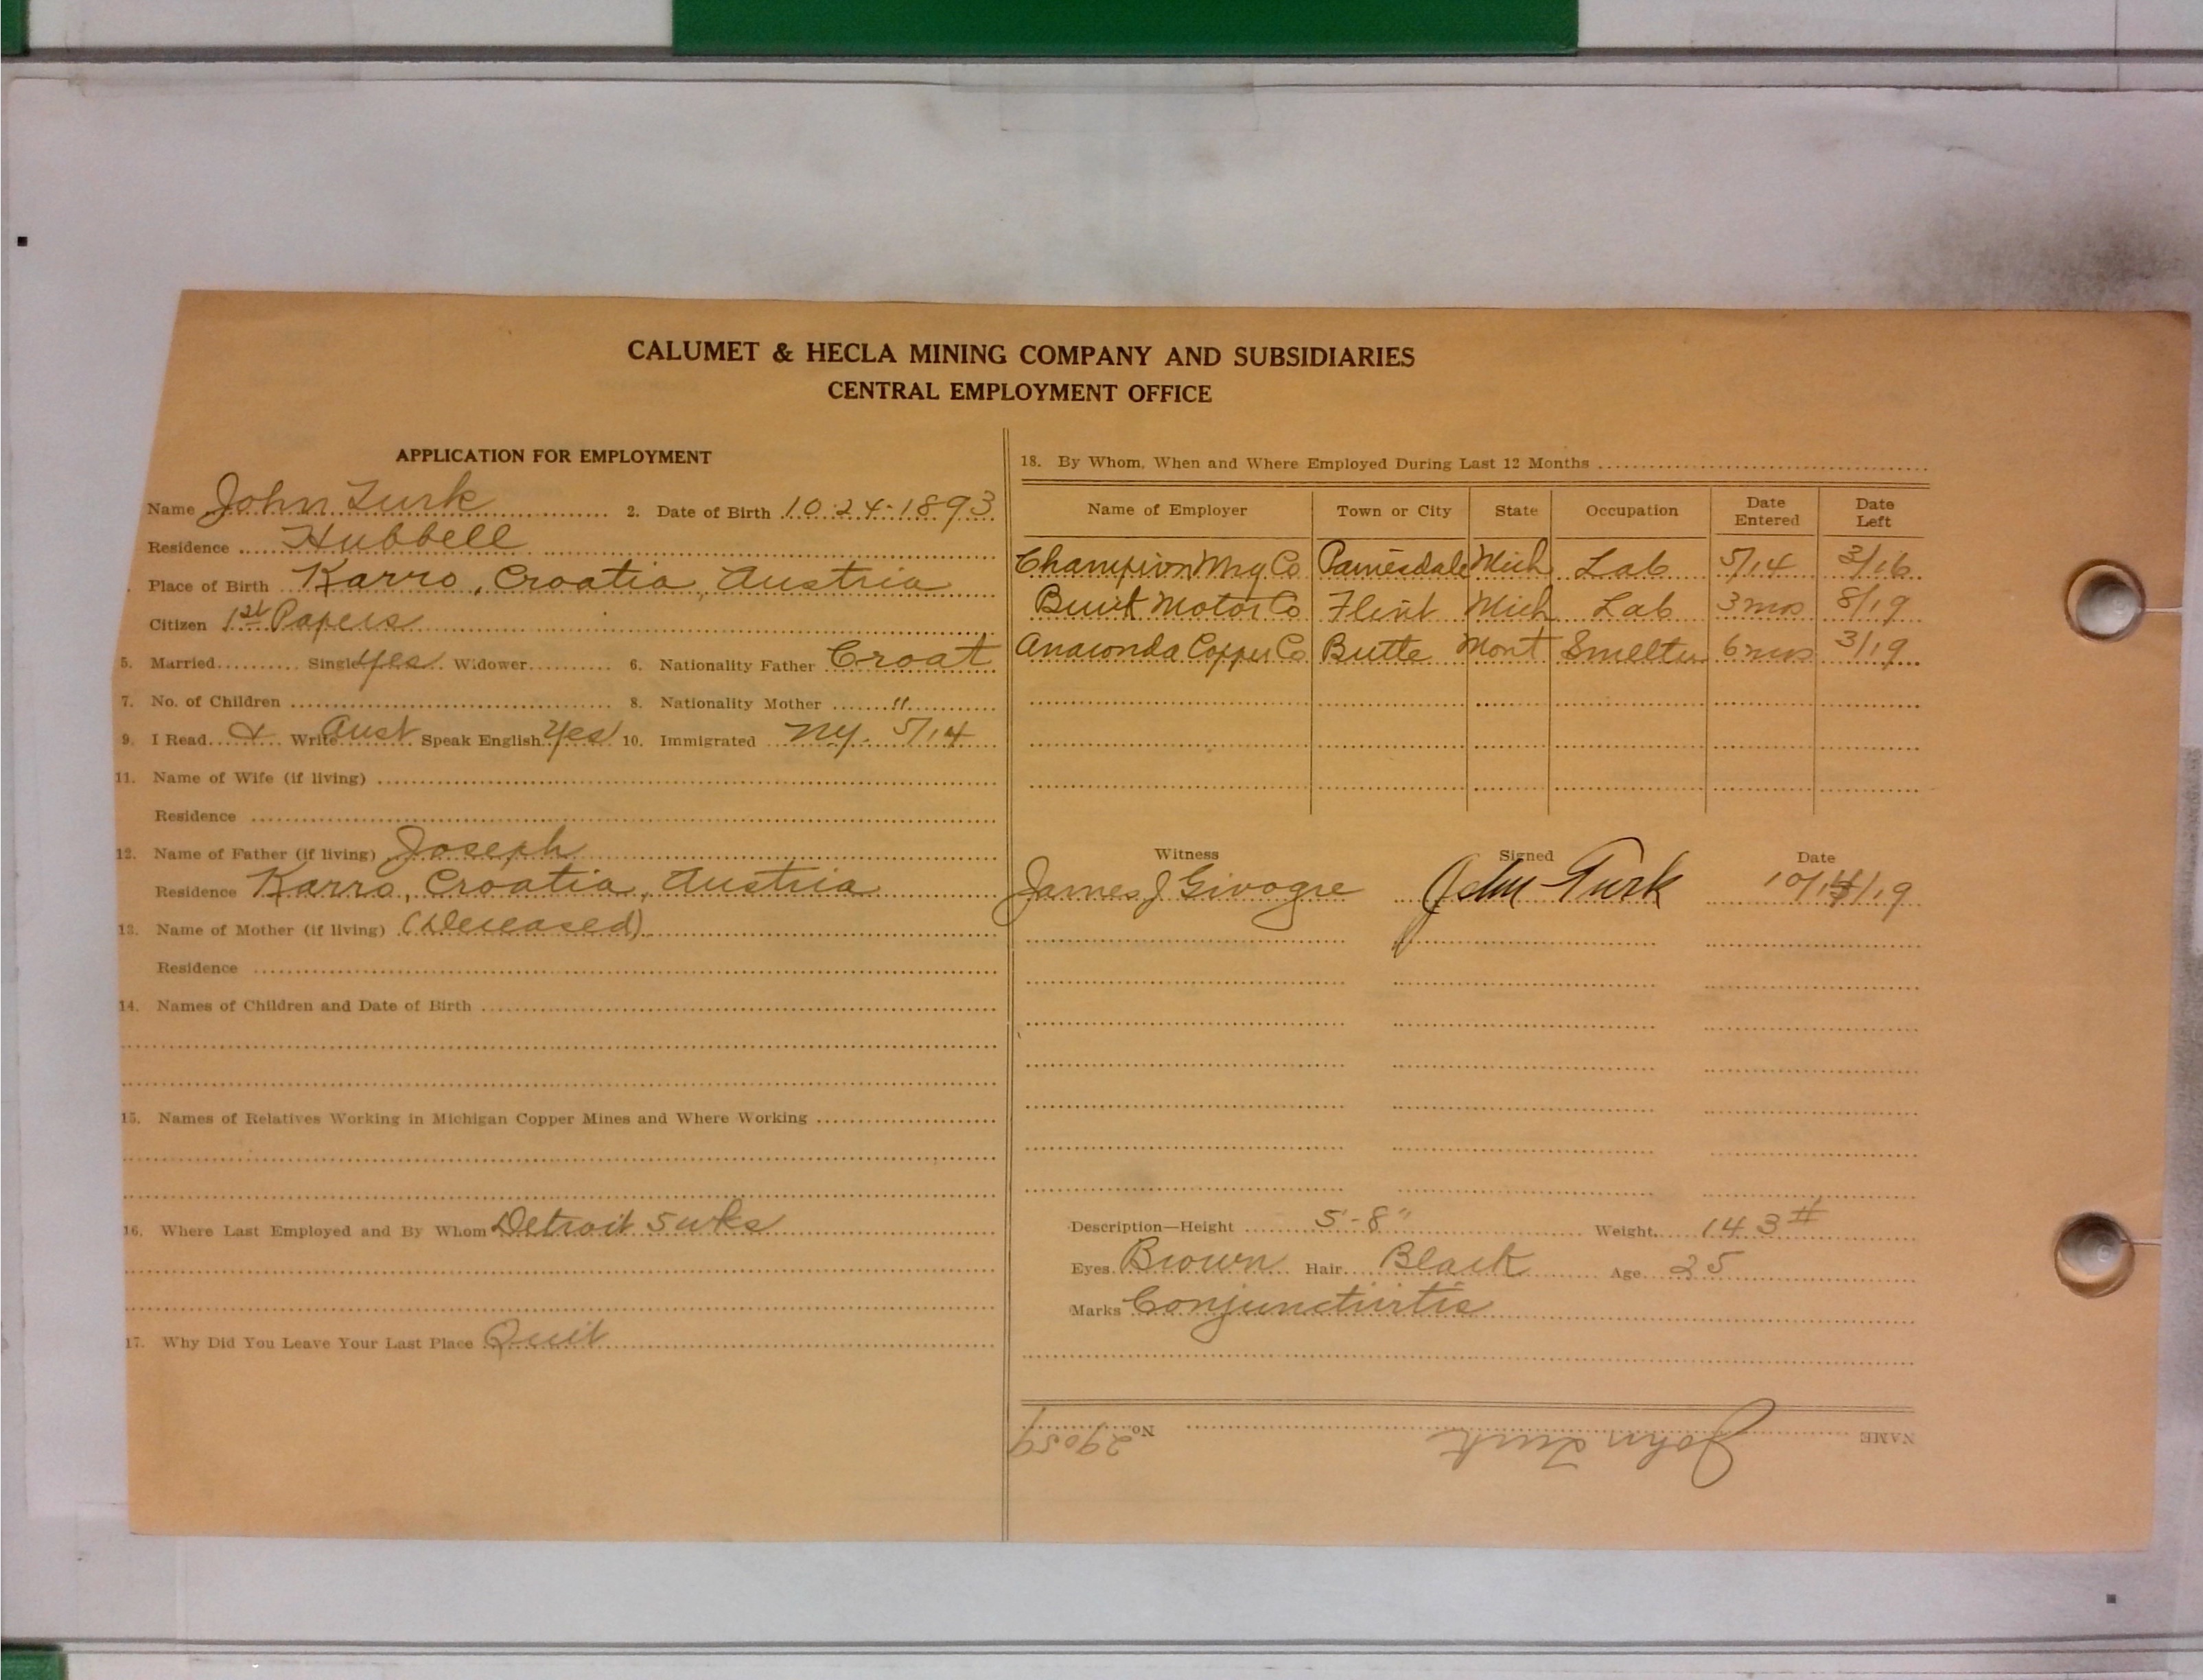 CALUMET & HECLA MINING COMPANY AND SUBSIDIARIES
CENTRAL EMPLOYMENT OFFICE
APPLICATION FOR EMPLOYMENT
Name John Turk 2. Date of Birth 10-24-1893
Residence Hubbell
Place of Birth Karro, Croatia, Austria
Citizen 1st Papers
5. Married Single Yes Widower 6. Nationality Father Croat
7. No. of Children 8. Nationality Mother "
9. I Read & Write Aust Speak English Yes 10. Immigrated NY. 5/14
11. Name of Wife (if living)
Residence
12. Name of Father (if living) Joseph
Residence Karro, Croatia, Austria
13. Name of Mother (if living) (Deceased)
Residence
14. Names of Children and Date of Birth
15. Names of Relatives Working in Michigan Copper Mines and Where Working
16. Where Last Employed and By Whom Detroit 5 wks
17. Why Did You Leave Your Last Place Quit
18. By Whom, When and Where Employed During Last 12 Months
Name of Employer Town or City State Occupation Date Entered Date Left
Champion Mng Co Painesdale Mich Lab 5/14 3/16
Buick Motor Co Flint Mich Lab 3 mos 8/19
Anaconda Copper Co Butte Mont Smelter 6 mos 3/19
Witness Signed Date
James J Givogre John Turk 10/14/19
Description—Height 5'-8" Weight 143#
Eyes Brown Hair Black Age 25
Marks Conjunctivitis
NAME John Turk No. 29059